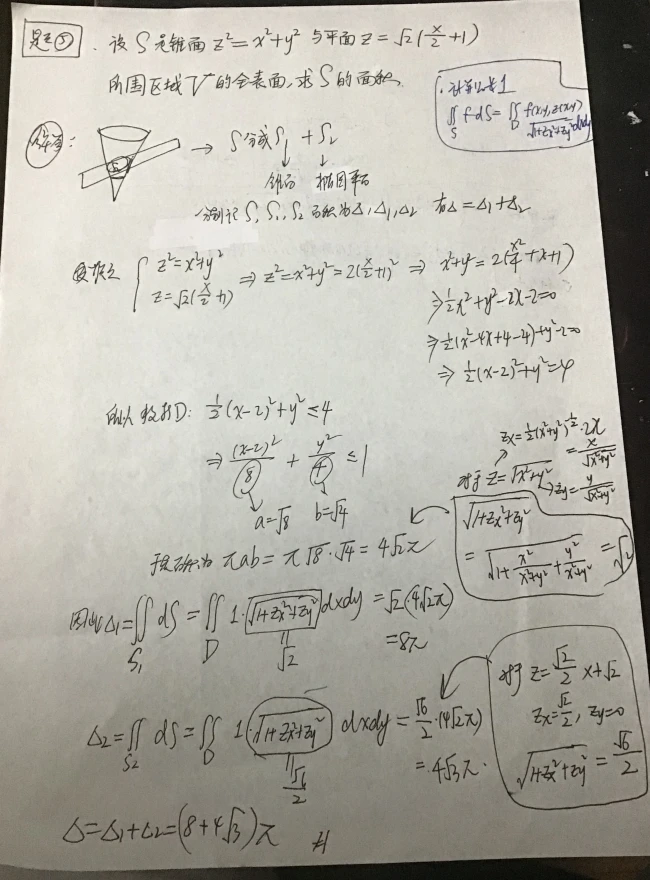 题⑤. 设S是锥面 z²=x²+y² 与平面 z=√2(x/2+1)
所围区域V的全表面,求S的面积.
计算公式1
∬_S f dS = ∬_D f(x,y,z(x,y)) √(1+zx²+zy²) dxdy
解答: → S分成S₁+S₂
锥面 椭圆平面
分别记S,S₁,S₂面积为Δ,Δ₁,Δ₂ 有Δ=Δ₁+Δ₂
{ z²=x²+y²
z=√2(x/2+1) ⇒ z²=x²+y²=2(x/2+1)² ⇒ x²+y²=2(x²/4+x+1)
⇒ ½x²+y²-2x-2=0
⇒ ½(x²-4x+4-4)+y²-2=0
⇒ ½(x-2)²+y²=4
所以投影D: ½(x-2)²+y²≤4
⇒ (x-2)²/8 + y²/4 ≤1
a=√8 b=√4
面积为 πab=π√8·√4=4√2π
zx=½(x²+y²)^(-½)·2x
= x/√(x²+y²)
对于 z=√(x²+y²) → zy= y/√(x²+y²)
√(1+zx²+zy²)
= √(1+x²/(x²+y²)+y²/(x²+y²)) = √2
因此Δ₁=∬_S₁ dS=∬_D 1·√(1+zx²+zy²) dxdy=√2(4√2π)
√2
=8π
对于 z=√2/2 x+√2
zx=√2/2, zy=0
√(1+zx²+zy²)=√6/2
Δ₂=∬_S₂ dS=∬_D 1·√(1+zx²+zy²) dxdy=√6/2·(4√2π)
√6/2
=4√3π.
Δ=Δ₁+Δ₂=(8+4√3)π #